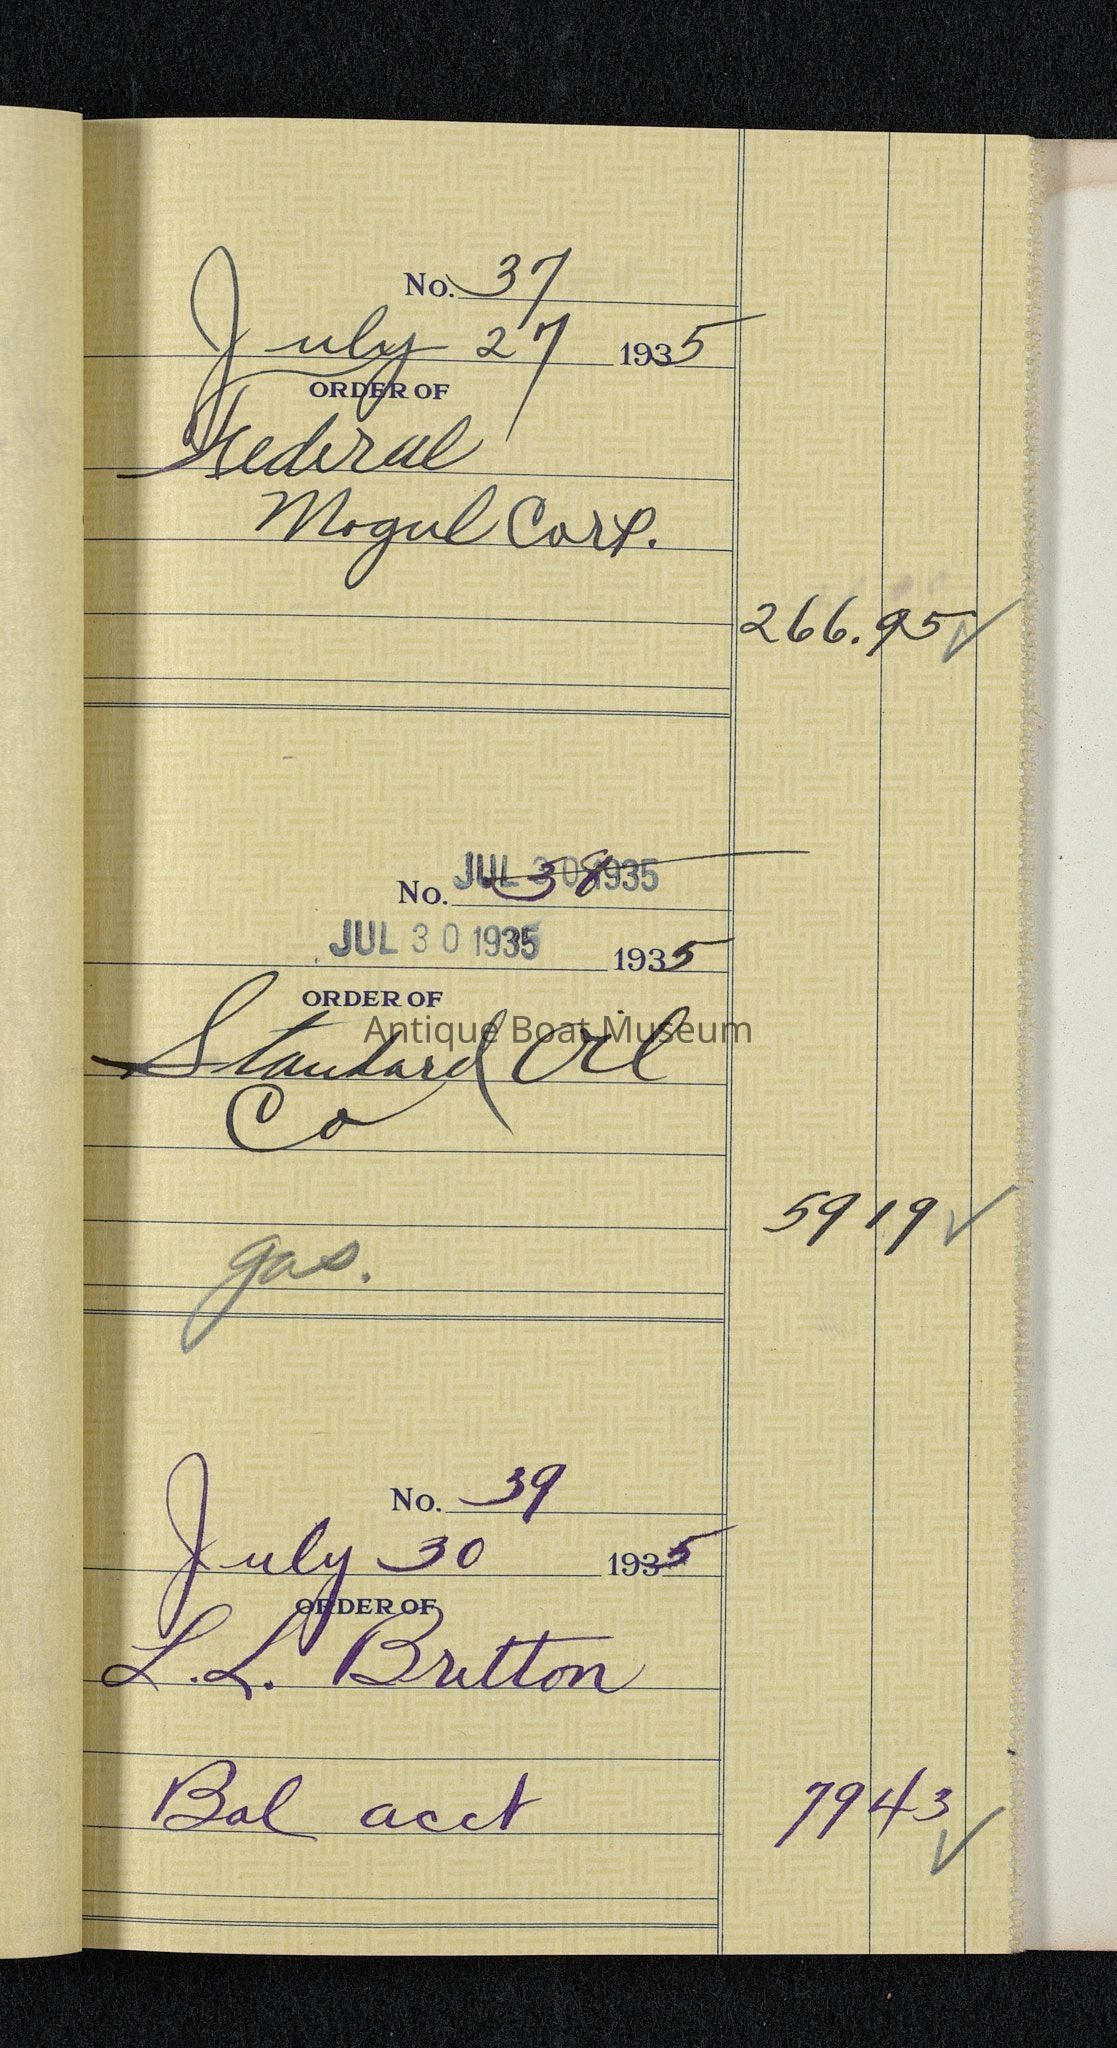 No. 37
July 27 1935
ORDER OF
Federal
Mogul Corp.
266.95 ✓
JUL 30 1935
No. 38
JUL 30 1935 1935
ORDER OF
Antique Boat Museum
Standard Oil
Co
59 19 ✓
gas.
No. 39
July 30 1935
ORDER OF
L.L. Britton
Bal acct 79 43 ✓